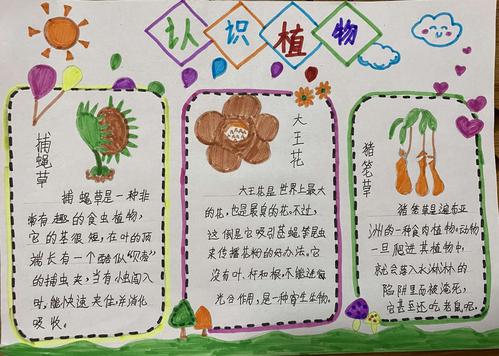 认识植物
捕蝇草
捕蝇草是一种非
常有趣的食虫植物,
它的茎很短,在叶的顶
端长有一个酷似“贝壳”
的捕虫夹,当有小虫闯入
时,能快速夹住,并消化
吸收。
大王花
大王花是世界上最大
的花,也是最臭的花。不过,
这倒是它吸引苍蝇等昆虫
来传播花粉的好办法。它
没有叶、杆和根,不能进行
光合作用,是一种寄生生物。
猪笼草
猪笼草是遍布亚
洲的一种食肉植物。动物
一旦爬进其植物中
就会落入水淋淋的
陷阱里而被淹死,
它甚至还吃老鼠呢。